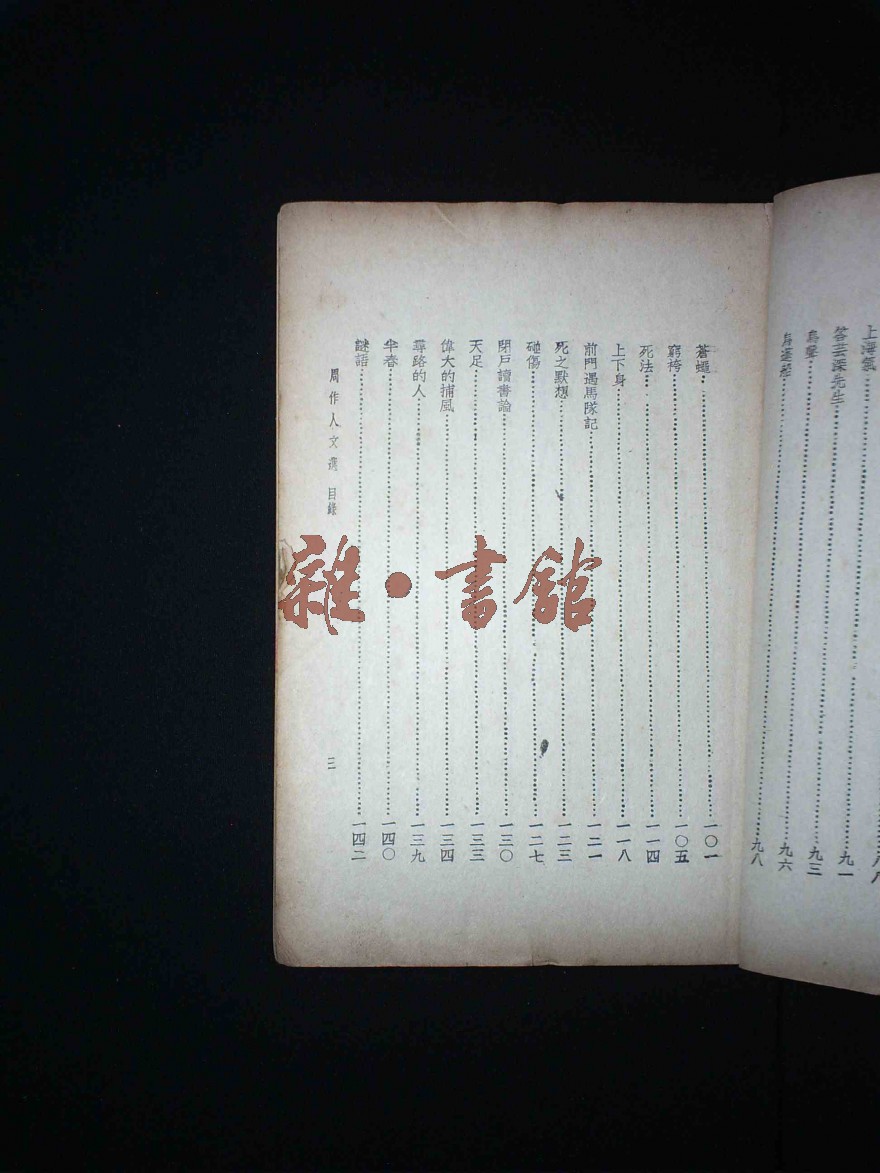 上海氣……八八
答芸深先生……九一
鳥聲……九三
……九六
……九八
蒼蠅……一〇一
窮袴……一〇五
死法……一一四
上下身……一一八
前門遇馬隊記……一二一
死之默想……一二三
碰傷……一二七
閉戶讀書論……一三〇
天足……一三三
偉大的捕風……一三四
尋路的人……一三九
半春……一四〇
謎語……一四二
周作人文選 目錄 三
雜·書館